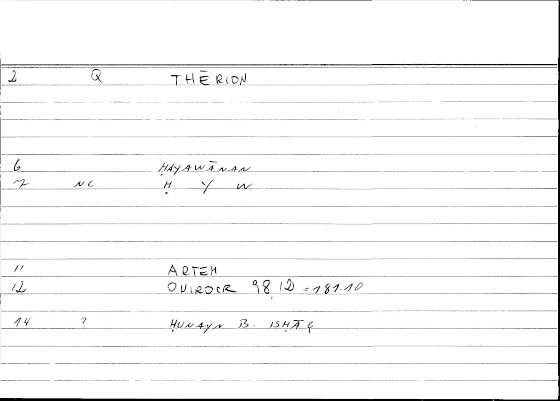 2 Q THĒRION
6 ḤAYAWĀNAN
7 NC Ḥ Y W
11 ARTEM
12 ONIROCR 98,12 = 181.10
14 ? ḤUNAYN B. ISḤĀQ